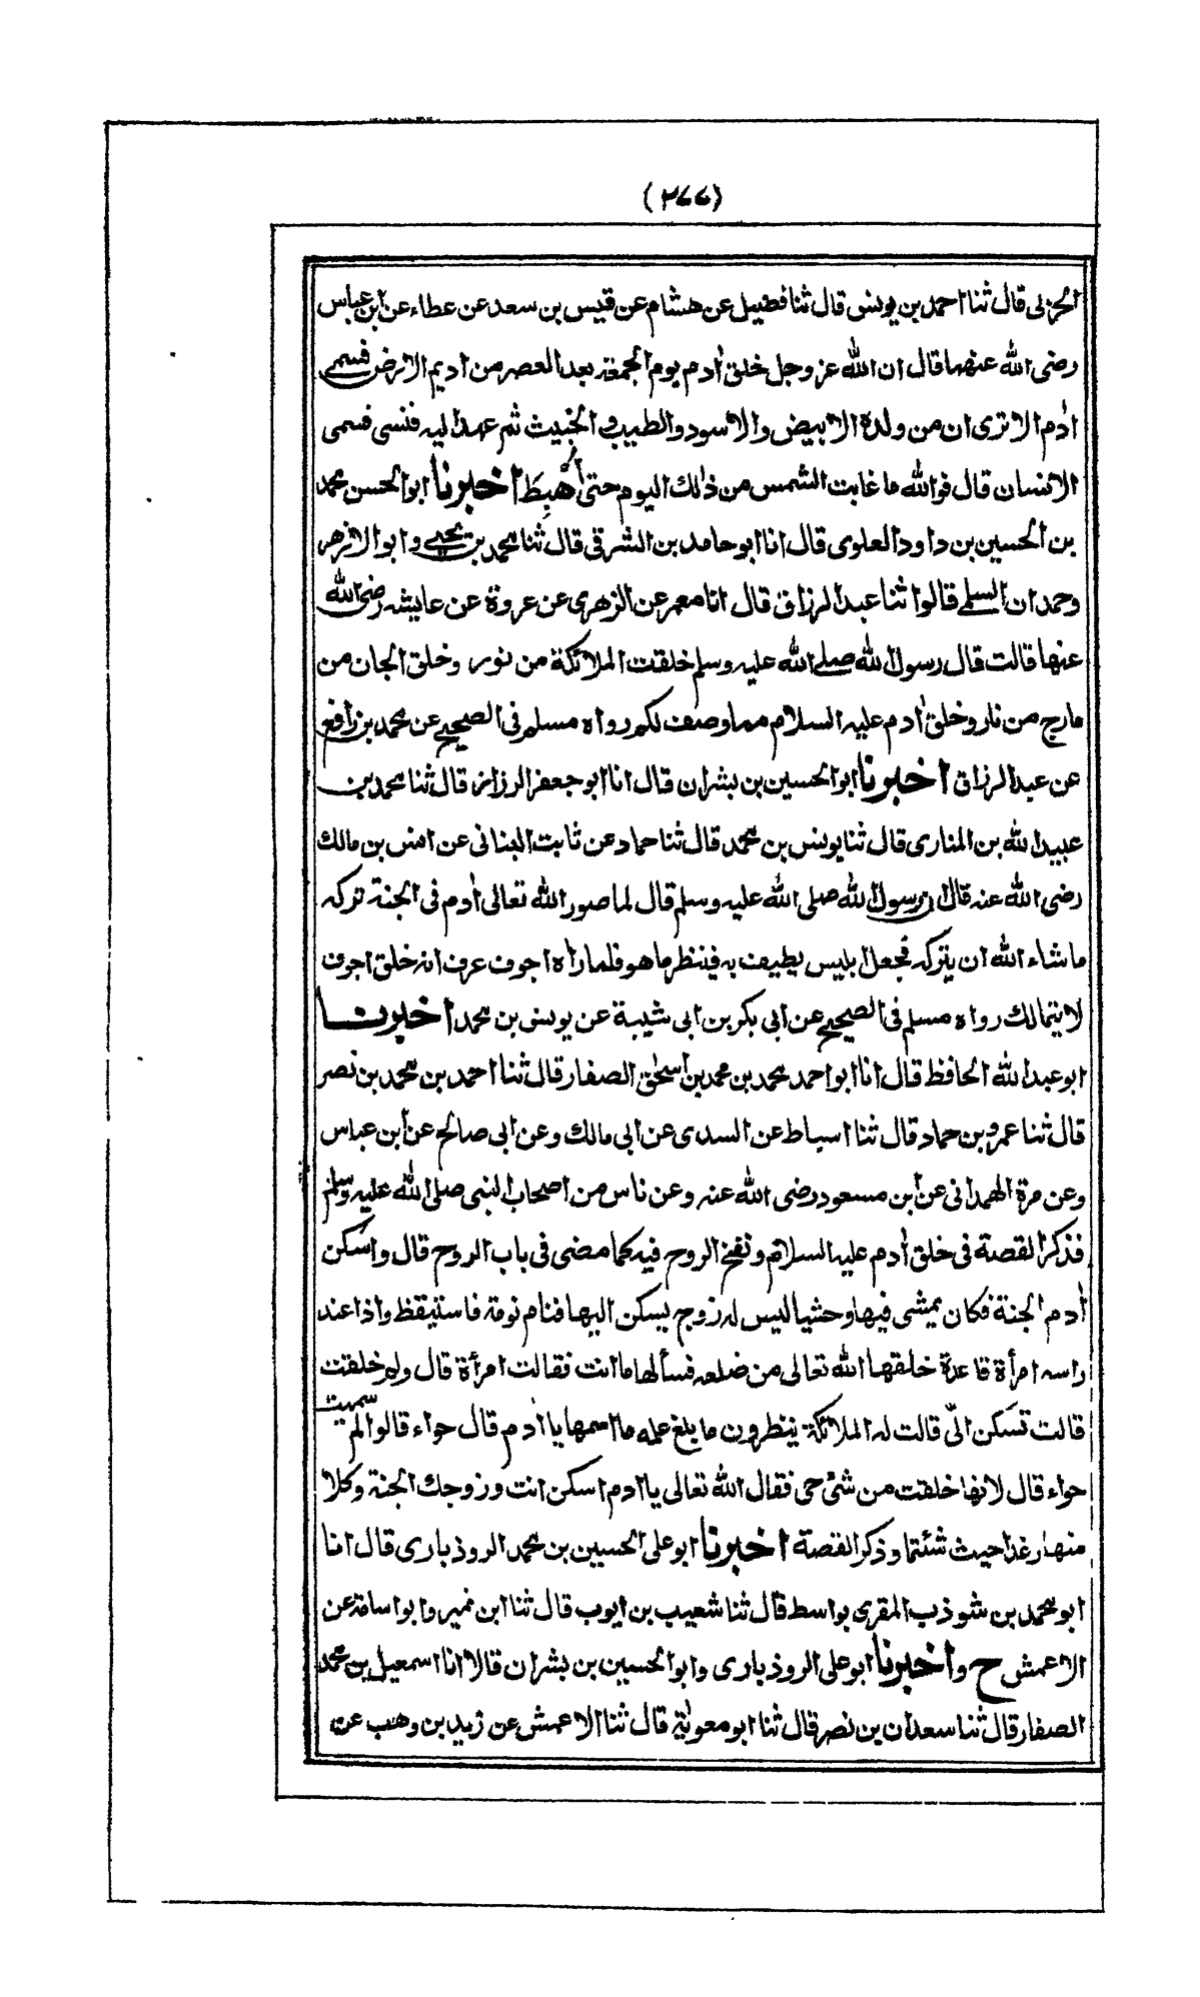 (٢٧٧)
الحزلى قال ثنا احمد بن يونس قال ثنا فضيل عن هشام عن قيس بن سعد عن عطاء عن ابن عباس
رضى الله عنهما قال ان الله عز وجل خلق اٰدم يوم الجمعة بعد العصر من اديم الارض فسمى
اٰدم الا ترى ان من ولده الابيض والاسود والطيب والخبيث ثم عهد اليه فنسى فسمى
الانسان قال فوالله ما غابت الشمس من ذٰلك اليوم حتى أُهْبِطَ اخبرنا ابو الحسن محمد
بن الحسين بن داود العلوى قال انا ابو حامد بن الشرقى قال ثنا محمد بن يحيى وابو الازهر
وحمدان السلمى قالوا ثنا عبد الرزاق قال انا معمر عن الزهرى عن عروة عن عايشه رضى الله
عنها قالت قال رسول الله صلى الله عليه وسلم خلقت الملائكة من نور وخلق الجان من
مارج من نار وخلق اٰدم عليه السلام مما وصف لكم رواه مسلم فى الصحيح عن محمد بن رافع
عن عبد الرزاق اخبرنا ابو الحسين بن بشران قال انا ابو جعفر الرزاز قال ثنا محمد بن
عبيد الله بن المنارى قال ثنا يونس بن محمد قال ثنا حماد عن ثابت البنانى عن انس بن مالك
رضى الله عنه قال ان رسول الله صلى الله عليه وسلم قال لما صور الله تعالى اٰدم فى الجنة تركه
ما شاء الله ان يتركه فجعل ابليس يطيف به فينظر ما هو فلما راٰه اجوف عرف انه خلق اجوف
لا يتمالك رواه مسلم فى الصحيح عن ابى بكر بن ابى شيبة عن يونس بن محمد اخبرنا
ابو عبد الله الحافظ قال انا ابو احمد محمد بن محمد بن اسحٰق الصفار قال ثنا احمد بن محمد بن نصر
قال ثنا عمرو بن حماد قال ثنا اسباط عن السدى عن ابى مالك وعن ابى صالح عن ابن عباس
وعن مرة الهمدانى عن ابن مسعود رضى الله عنه وعن ناس من اصحاب النبى صلى الله عليه وسلم
فذكر القصة فى خلق اٰدم عليه السلام ونفخ الروح فيه كما مضى فى باب الروح قال واسكن
اٰدم الجنة فكان يمشى فيها وحشيا ليس له زوج يسكن اليها فنام نومة فاستيقظ واذا عند
راسه امرأة قاعدة خلقها الله تعالى من ضلعه فسألها ما انت فقالت امرأة قال ولم خلقت
قالت تسكن الىّ قالت له الملائكة ينظرون ما بلغ علمه ما اسمها يا اٰدم قال حواء قالوا لم سميت
حواء قال لانها خلقت من شئ حى فقال الله تعالى يا اٰدم اسكن انت وزوجك الجنة وكلا
منها رغدا حيث شئتما وذكر القصة اخبرنا ابو على الحسين بن محمد الروذبارى قال انا
ابو محمد بن شوذب المقرى بواسط قال ثنا شعيب بن ايوب قال ثنا ابن نمير وابو اسامة عن
الاعمش ح واخبرنا ابو على الروذبارى وابو الحسين بن بشران قالا انا اسمعيل بن محمد
الصفار قال ثنا سعدان بن نصر قال ثنا ابو معوٰية قال ثنا الاعمش عن زيد بن وهب عن